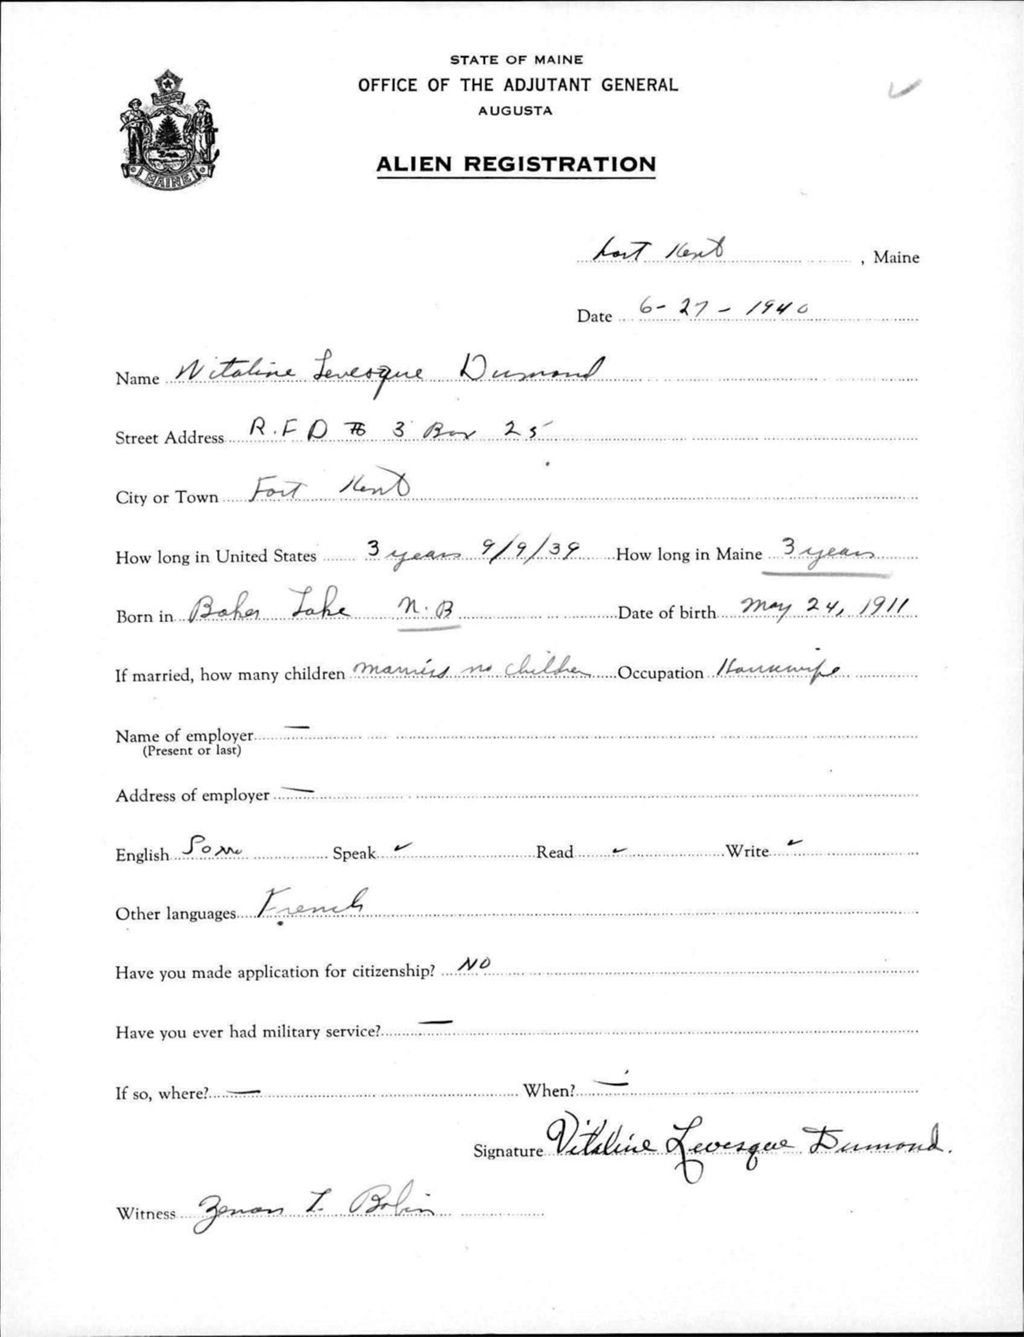 STATE OF MAINE
OFFICE OF THE ADJUTANT GENERAL
AUGUSTA
MAINE
ALIEN REGISTRATION
Fort Kent, Maine
Date 6-27-1940
Name Vitaline Levesque Dumond
Street Address R.F.D # 3 Box 25
City or Town Fort Kent
How long in United States 3 years 9/9/39 How long in Maine 3 years
Born in Baker Lake N.B Date of birth May 24, 1911
If married, how many children Married no children Occupation Housewife
Name of employer —
(Present or last)
Address of employer —
English Some Speak ✓ Read ✓ Write ✓
Other languages French
Have you made application for citizenship? NO
Have you ever had military service? —
If so, where? — When? —
Signature Vitaline Levesque Dumond.
Witness